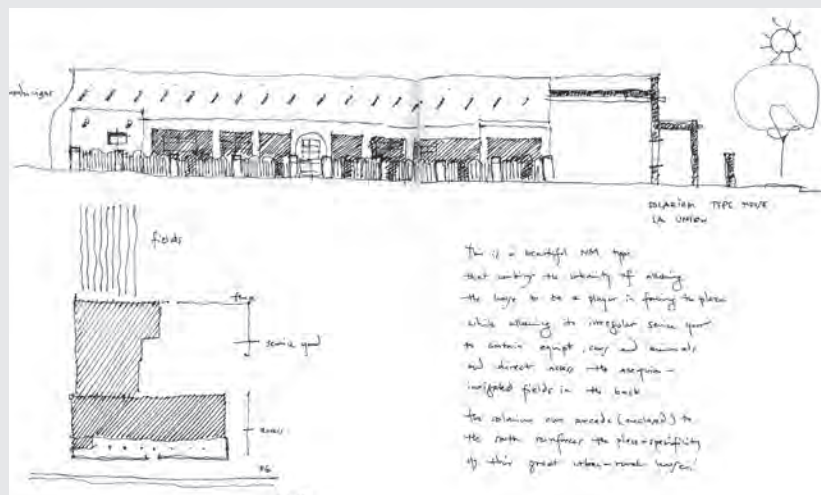 SOLARIUM TYPE HOUSE
LA UNION
fields
service yard
This is a beautiful NM type
that the of allowing
the house to be a player in forming the plaza
while allowing its irregular service yard
to contain equipt, cars and animals
and direct access to the acequia-
irrigated fields in the back
The solarium arcade (enclosed) to
the south reinforces the place-specificity
of this great urban-rural house!